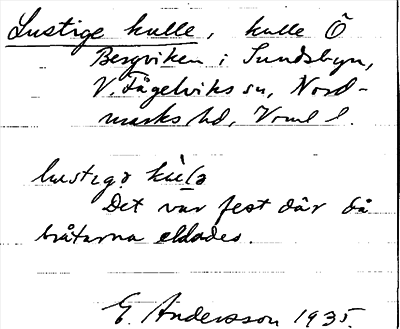 Lustige kulle, kulle Ö
Bergviken i Sundsbyn,
V. Fågelviks sn, Nord-
marks hd, Vrml l.
lustigə
Det var fest där då
bråtarna eldades.
E. Andersson 1935.